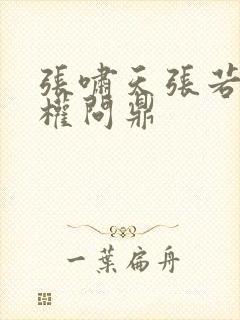 張嘯天張若
權問鼎
一葉扁舟